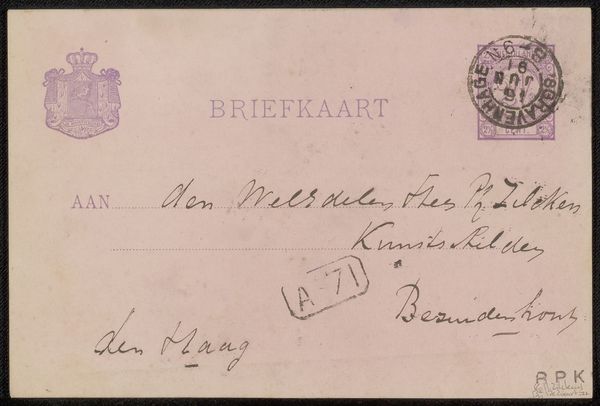 BRIEFKAART
'SGRAVENHAGE
AAN den Weledelen Heer Ph Zilcken
Kunstschilder
A 71
Bezuidenhout
den Haag
R P K